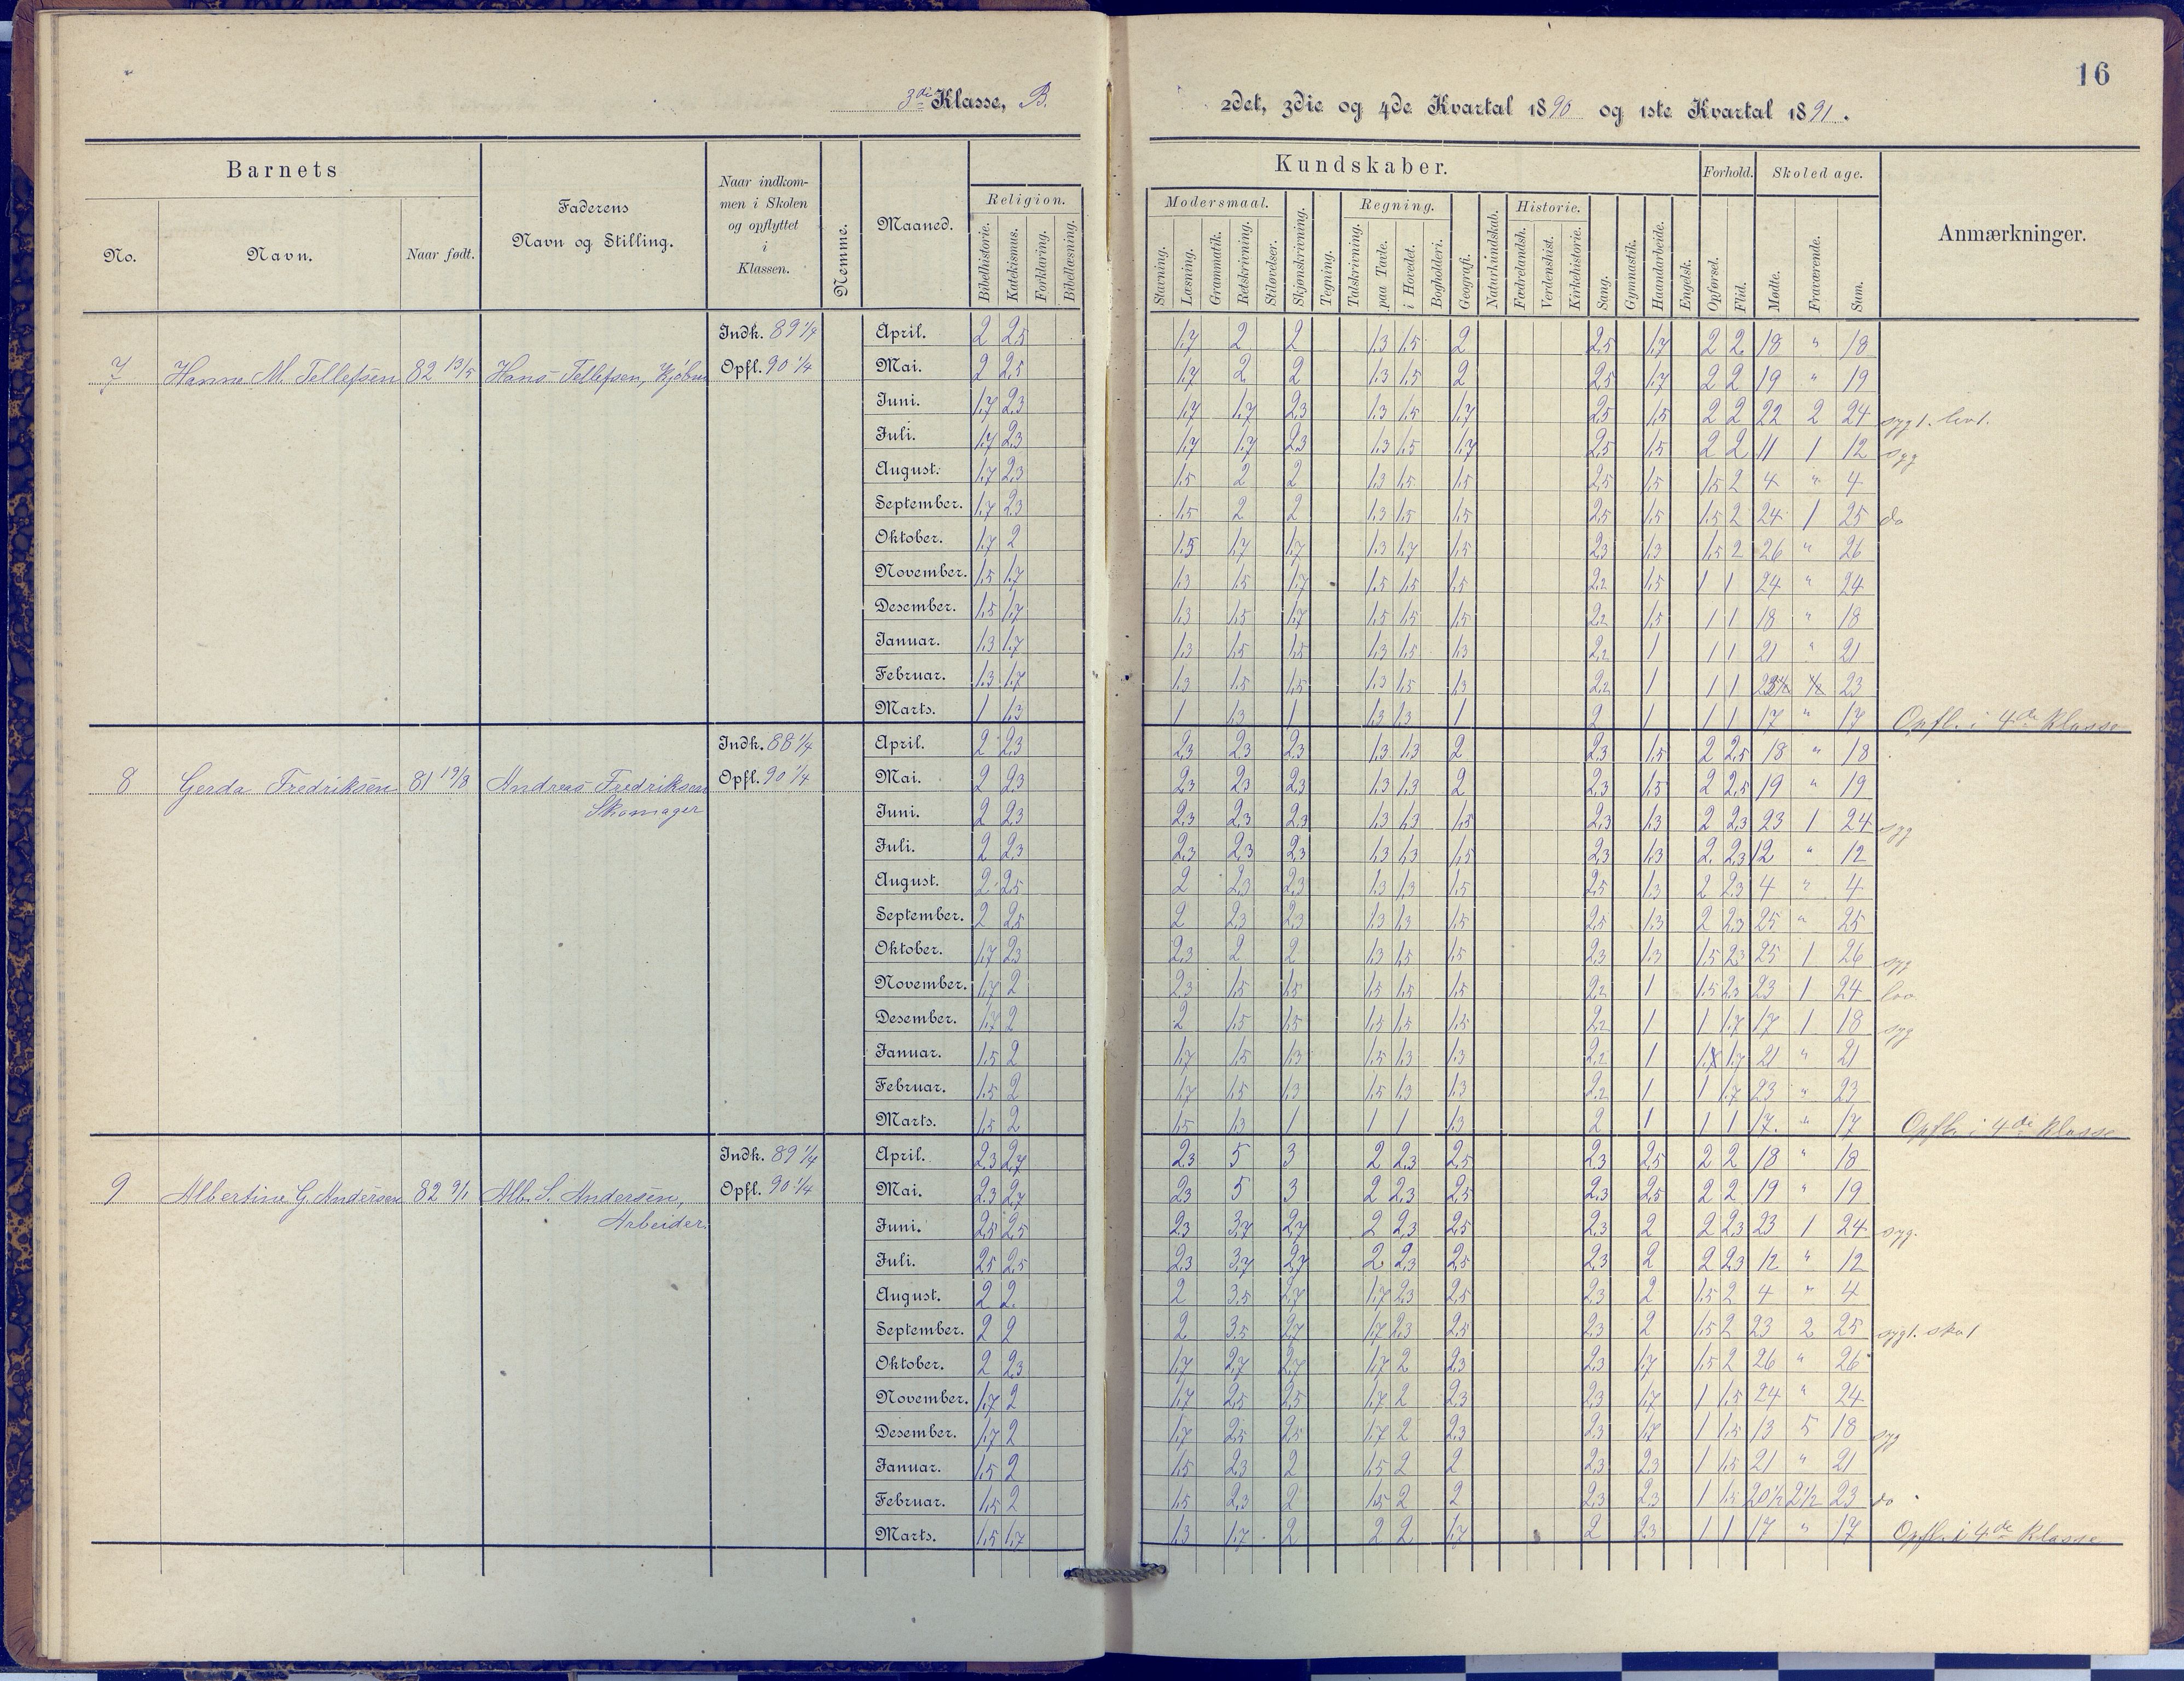 16
3die Klasse, B.
2det, 3die og 4de Kvartal 1890 og 1ste Kvartal 1891.
Barnets
No.
Navn.
Naar født.
Faderens
Navn og Stilling.
Naar indkom-
men i Skolen
og opflyttet
i
Klassen.
Nemme.
Maaned.
Kundskaber.
Religion.
Bibelhistorie.
Katekismus.
Forklaring.
Bibellæsning.
Modersmaal.
Stavning.
Læsning.
Grammatik.
Retskrivning.
Stiløvelser.
Skjønskrivning.
Tegning.
Regning.
Talskrivning.
paa Tavle.
i Hovedet.
Bogholderi.
Geografi.
Naturkundskab.
Historie.
Fædrelandsh.
Verdenshist.
Kirkehistorie.
Sang.
Gymnastik.
Haandarbeide.
Engelsk.
Forhold.
Opførsel.
Flid.
Skoledage.
Mødte.
Fraværende.
Sum.
Anmærkninger.
7 Hanne M. Tellefsen 82 13/5 Hans Tellefsen,
Indk. 89 1/4
Opfl. 90 1/4
April. 2 2,5 1,7 2 2 1,3 1,5 2 2,5 1,7 2 2 18 " 18
Mai. 2 2,5 1,7 2 2 1,3 1,5 2 2,5 1,7 2 2 19 " 19
Juni. 1,7 2,3 1,7 1,7 2,3 1,3 1,5 1,7 2,5 1,5 2 2 22 2 24
Juli. 1,7 2,3 1,7 1,7 2,3 1,3 1,5 1,7 2,5 1,5 2 2 11 1 12 syg
August. 1,7 2,3 1,5 2 2 1,3 1,5 1,5 2,5 1,5 1,5 2 4 " 4
September. 1,7 2,3 1,5 2 2 1,3 1,5 1,5 2,5 1,5 1,5 2 24 1 25 do
Oktober. 1,7 2 1,5 1,7 1,7 1,3 1,7 1,5 2,3 1,3 1,5 2 26 " 26
November. 1,5 1,7 1,3 1,5 1,7 1,5 1,5 1,5 2,2 1,5 1 1 24 " 24
Desember. 1,5 1,7 1,3 1,5 1,7 1,5 1,5 1,5 2,2 1,5 1 1 18 " 18
Januar. 1,3 1,7 1,3 1,5 1,5 1,3 1,5 1,3 2,2 1 1 1 21 " 21
Februar. 1,3 1,7 1,3 1,5 1,5 1,3 1,5 1,3 2,2 1 1 1 23
Marts. 1 1,3 1 1,3 1 1,3 1,3 1 2 1 1 1 17 " 17 Opfl. i 4de Klasse
8 Gerda Fredriksen 81 19/8 Andreas Fredriksen
Skomager
Indk. 88 1/4
Opfl. 90 1/4
April. 2 2,3 2,3 2,3 2,3 1,3 1,3 2 2,3 1,5 2 2,5 18 " 18
Mai. 2 2,3 2,3 2,3 2,3 1,3 1,3 2 2,3 1,5 2 2,5 19 " 19
Juni. 2 2,3 2,3 2,3 2,3 1,3 1,3 1,5 2,3 1,3 2 2,3 23 1 24 syg
Juli. 2 2,3 2,3 2,3 2,3 1,3 1,3 1,5 2,3 1,3 2 2,3 12 " 12
August. 2 2,5 2 2,3 2,3 1,3 1,3 1,5 2,5 1,3 2 2,3 4 " 4
September. 2 2,5 2 2,3 2,3 1,3 1,3 1,5 2,5 1,3 2 2,3 25 " 25
Oktober. 1,7 2,3 2,3 2 2 1,3 1,5 1,5 2,3 1,3 1,5 2,3 25 1 26 syg
November. 1,7 2 2,3 1,5 1,5 1,5 1,5 1,5 2,2 1 1,5 2,3 23 1 24 lov
Desember. 1,7 2 2 1,5 1,5 1,5 1,5 1,5 2,2 1 1 1,7 17 1 18 syg
Januar. 1,5 2 1,7 1,5 1,3 1,5 1,3 1,3 2,2 1 1 1,7 21 " 21
Februar. 1,5 2 1,7 1,5 1,3 1,5 1,3 1,3 2,2 1 1 1,7 23 " 23
Marts. 1,5 2 1,5 1,3 1 1 1 1,3 2 1 1 1 17 " 17 Opfl. i 4de Klasse
9 Albertine G. Andersen 82 9/1 Alb. S. Andersen,
Arbeider.
Indk. 89 1/4
Opfl. 90 1/4
April. 2,3 2,7 2,3 5 3 2 2,3 2,5 2,3 2,5 2 2 18 " 18
Mai. 2,3 2,7 2,3 5 3 2 2,3 2,5 2,3 2,5 2 2 19 " 19
Juni. 2,5 2,5 2,3 3,7 2,7 2 2,3 2,5 2,3 2 2 2,3 23 1 24 syg.
Juli. 2,5 2,5 2,3 3,7 2,7 2 2,3 2,5 2,3 2 2 2,3 12 " 12
August. 2 2 2 3,5 2,7 1,7 2,3 2,5 2,3 2 1,5 2 4 " 4
September. 2 2 2 3,5 2,7 1,7 2,3 2,5 2,3 2 1,5 2 23 2 25
Oktober. 2 2,3 1,7 2,7 2,7 1,7 2 2,3 2,3 1,7 1,5 2 26 " 26
November. 1,7 2 1,7 2,5 2,5 1,7 2 2,3 2,3 1,7 1 1,5 24 " 24
Desember. 1,7 2 1,7 2,5 2,5 1,7 2 2,3 2,3 1,7 1 1,5 13 5 18 syg
Januar. 1,5 2 1,5 2,3 2 1,5 2 2 2,3 2,3 1 1,5 21 " 21
Februar. 1,5 2 1,5 2,3 2 1,5 2 2 2,3 2,3 1 1,5 20 1/2 2 1/2 23 do
Marts. 1,5 1,7 1,3 1,7 2 2 2 1,7 2 2,3 1 1 17 " 17 Opfl. i 4de Klasse